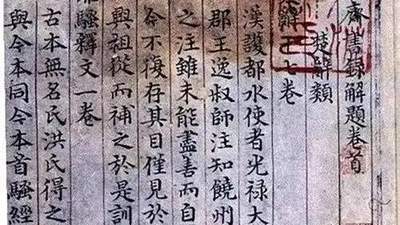 齋書錄解題卷首
楚辭類
辭十七卷
漢護都水使者光祿大
郡王逸叔師注知饒州
之注雖未能盡善而自
今不復存其目僅見於
興祖從而補之於是訓
離騷釋文一卷
古本無名氏洪氏得之
與今本同今本首騷經